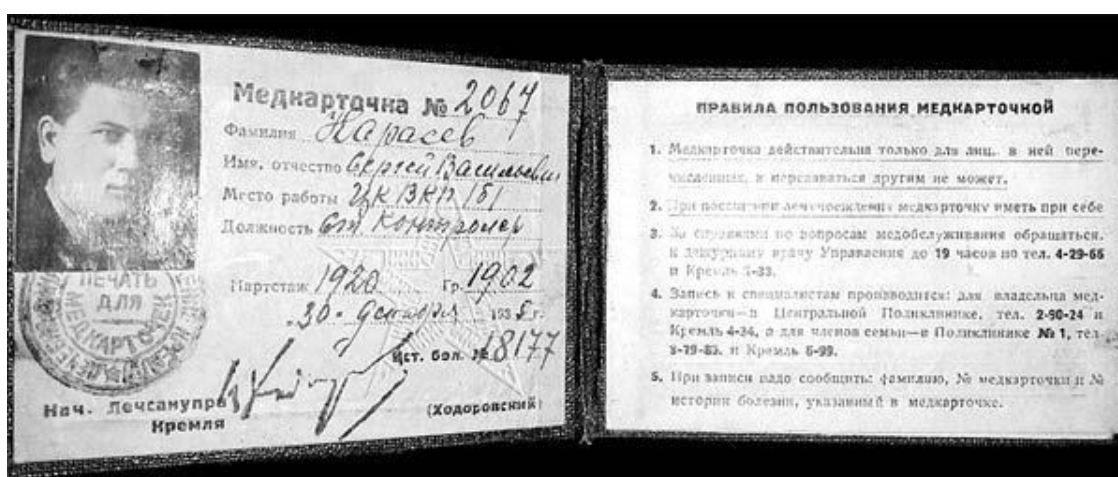 Медкарточка № 2067
Фамилия Карасев
Имя, отчество Сергей Васильевич
Место работы ЦК ВКП(б)
Должность Отв Контролер
Партстаж 1920 Гр. 1902
"30" Декабря 1935 г.
Ист. бол. № 18177
ПЕЧАТЬ
ДЛЯ
МЕДКАРТОЧЕК
Нач. Лечсанупра
Кремля
(Ходоровский)
ПРАВИЛА ПОЛЬЗОВАНИЯ МЕДКАРТОЧКОЙ
1. Медкарточка действительна только для лиц, в ней пере-
численных, и передаваться другим не может.
2. При посещении лечучреждения медкарточку иметь при себе
3. За справками по вопросам медобслуживания обращаться,
к дежурному врачу Управления до 19 часов по тел. 4-29-66
и Кремль
4. Запись к специалистам производится: для владельца мед-
карточки—в Центральной Поликлинике, тел. 2-90-24 и
Кремль 4-34, а для членов семьи—в Поликлинике № 1, тел.
и Кремль 6-99.
5. При записи надо сообщить: фамилию, № медкарточки и №
истории болезни, указанный в медкарточке.